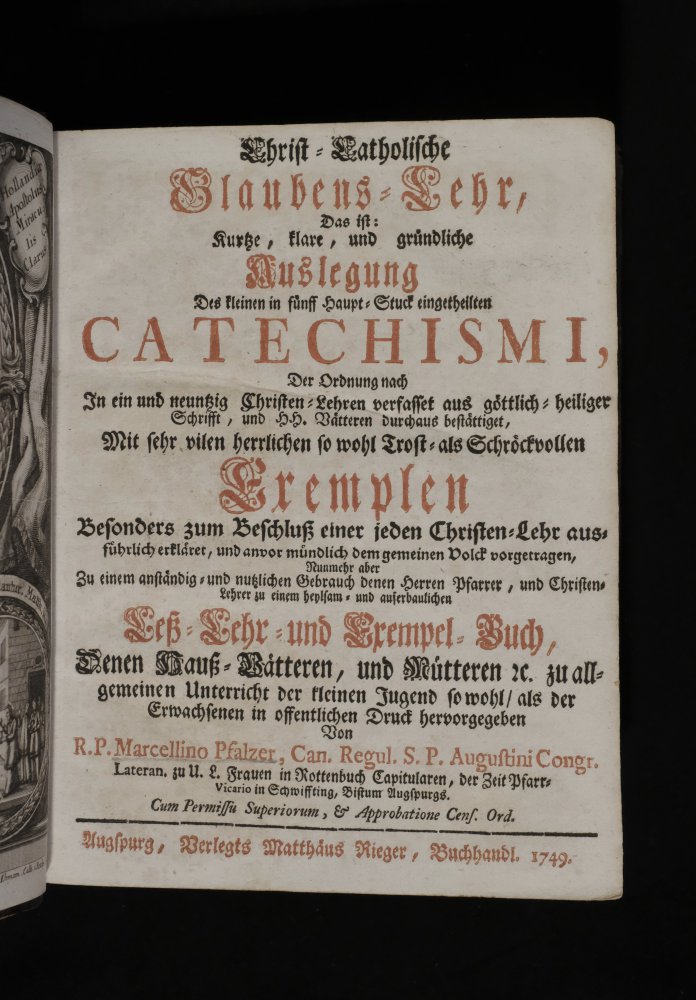 Hollandiæ
Apostolus
Miracu
lis
Clarus
Christ-Catholische
Glaubens-Lehr,
Das ist:
Kurtze, klare, und gründliche
Auslegung
Des kleinen in fünff Haupt-Stuck eingetheilten
CATECHISMI,
Der Ordnung nach
In ein und neuntzig Christen-Lehren verfasset aus göttlich-heiliger
Schrifft, und HH. Vätteren durchaus bestättiget,
Mit sehr vilen herrlichen so wohl Trost-als Schröckvollen
Exemplen
Besonders zum Beschluß einer jeden Christen-Lehr aus-
führlich erkläret, und anvor mündlich dem gemeinen Volck vorgetragen,
Nunmehr aber
Zu einem anständig-und nutzlichen Gebrauch denen Herren Pfarrer, und Christen-
Lehrer zu einem heylsam-und auferbaulichen
Leß-Lehr-und Exempel-Buch,
Denen Hauß-Vätteren, und Mütteren ꝛc. zu all-
gemeinen Unterricht der kleinen Jugend so wohl/ als der
Erwachsenen in offentlichen Druck hervorgegeben
Von
R.P. Marcellino Pfalzer, Can. Regul. S. P. Augustini Congr.
Lateran. zu U. L. Frauen in Rottenbuch Capitularen, der Zeit Pfarr-
Vicario in Schwiffting, Bistum Augspurgs.
Cum Permissu Superiorum, & Approbatione Cens. Ord.
Augspurg, Verlegts Matthäus Rieger, Buchhandl. 1749.